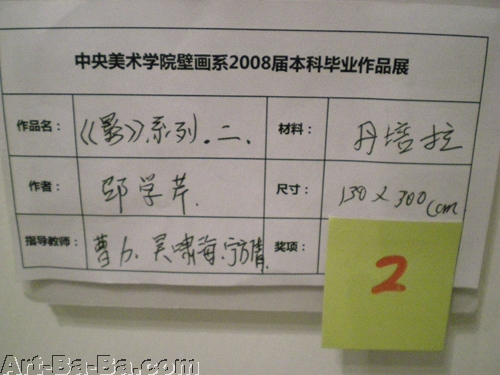 中央美术学院壁画系2008届本科毕业作品展
作品名： 《影》系列.二. 材料： 丹培拉
作者： 邬学芹. 尺寸： 130 x 300cm
指导教师： 曹力. 吴啸海. 奖项：
2
Art-Ba-Ba.com